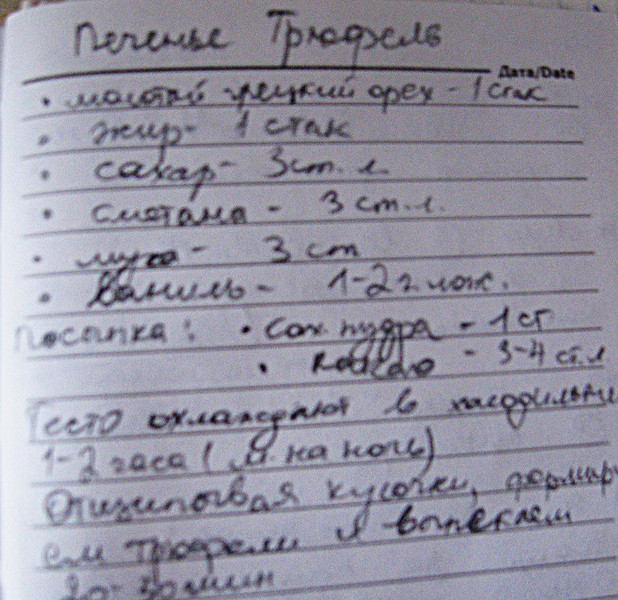 Печенье Трюфель
Дата/Date
• молотый грецкий орех - 1 стак
• жир - 1 стак
• сахар - 3 ст. л.
• сметана - 3 ст. л.
• мука - 3 ст
• Ваниль - 1-2 г. лож.
Посыпка: • сах. пудра - 1 ст
• какао - 3-4 ст. л
Тесто охлаждают в холодильни
1-2 часа (м. на ночь)
Отщипывая кусочки, формир
ем трюфели и выпекаем
20-30 мин